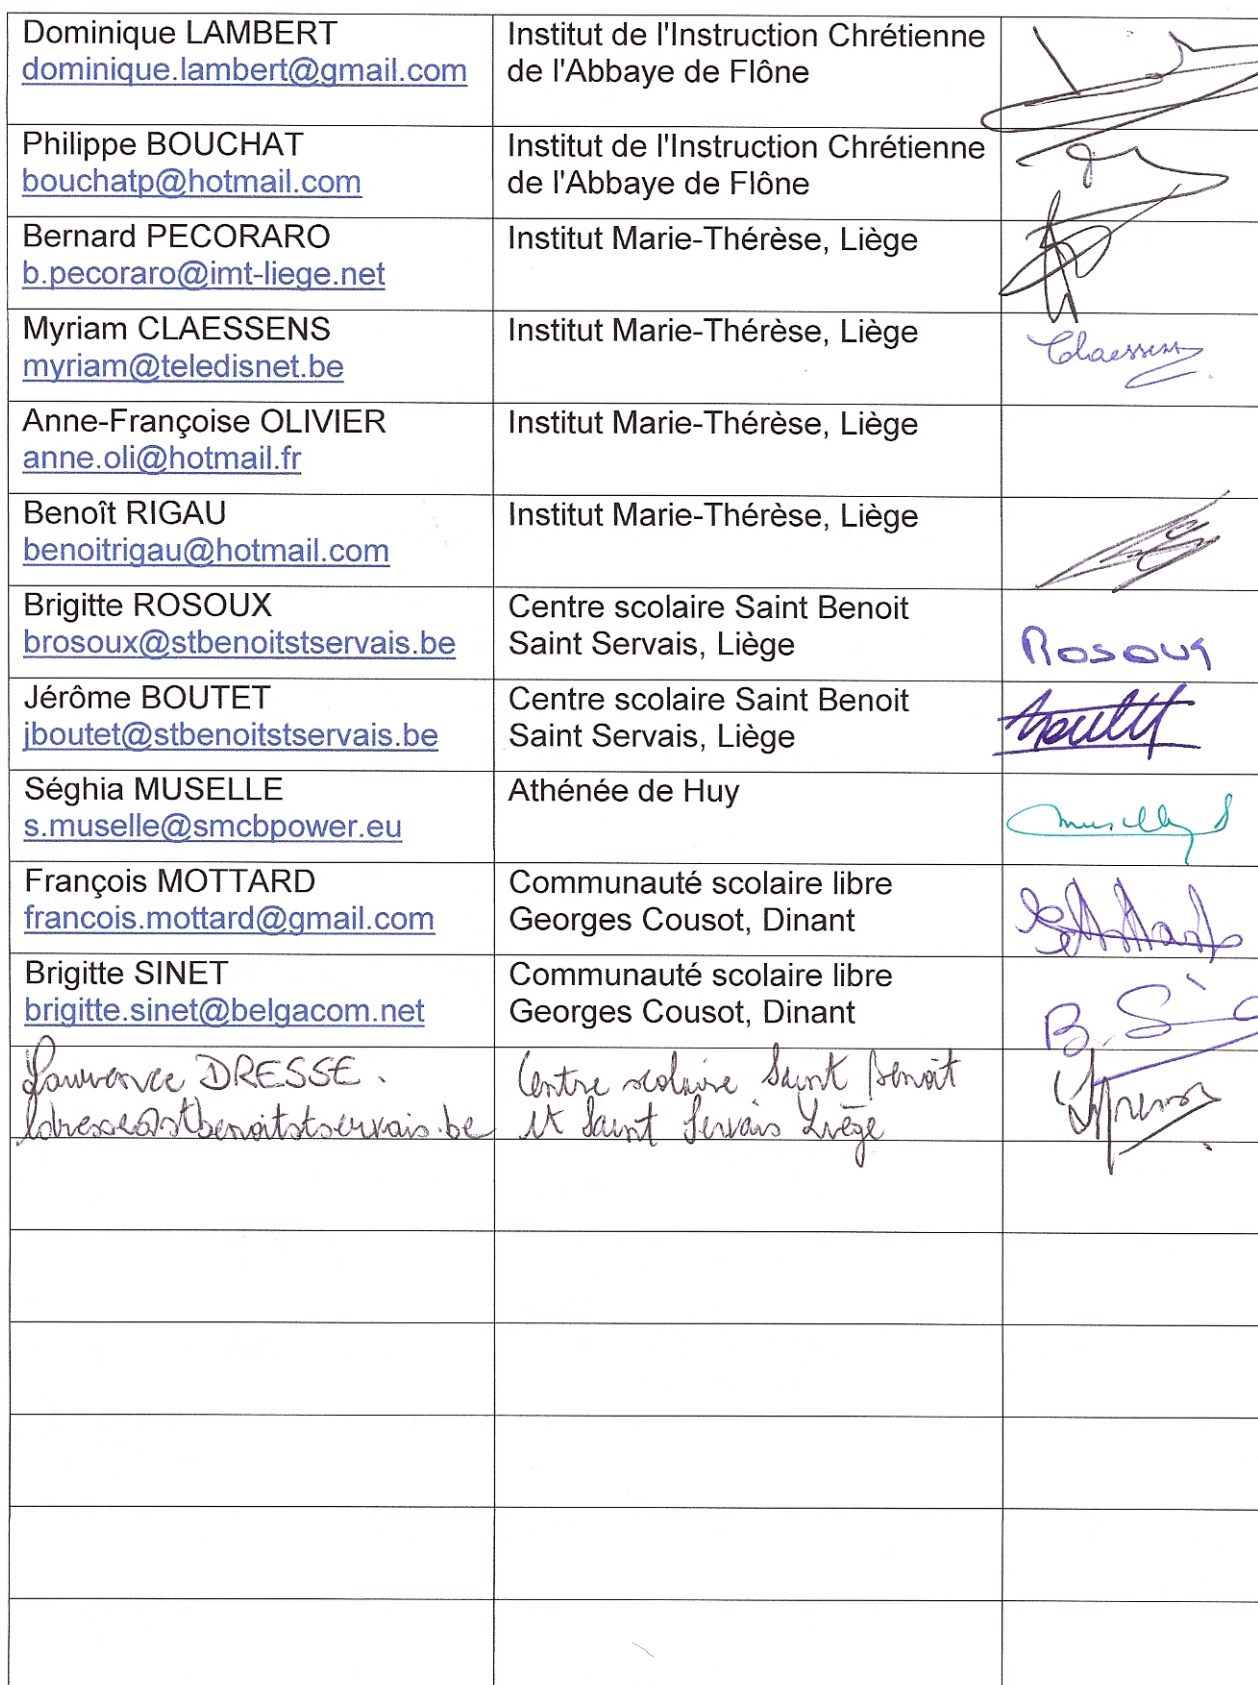 Dominique LAMBERT
dominique.lambert@gmail.com
Institut de l'Instruction Chrétienne
de l'Abbaye de Flône
Philippe BOUCHAT
bouchatp@hotmail.com
Institut de l'Instruction Chrétienne
de l'Abbaye de Flône
Bernard PECORARO
b.pecoraro@imt-liege.net
Institut Marie-Thérèse, Liège
Myriam CLAESSENS
myriam@teledisnet.be
Institut Marie-Thérèse, Liège
Claessens
Anne-Françoise OLIVIER
anne.oli@hotmail.fr
Institut Marie-Thérèse, Liège
Benoît RIGAU
benoitrigau@hotmail.com
Institut Marie-Thérèse, Liège
Brigitte ROSOUX
brosoux@stbenoitstservais.be
Centre scolaire Saint Benoit
Saint Servais, Liège
Rosoux
Jérôme BOUTET
jboutet@stbenoitstservais.be
Centre scolaire Saint Benoit
Saint Servais, Liège
Séghia MUSELLE
s.muselle@smcbpower.eu
Athénée de Huy
François MOTTARD
francois.mottard@gmail.com
Communauté scolaire libre
Georges Cousot, Dinant
Brigitte SINET
brigitte.sinet@belgacom.net
Communauté scolaire libre
Georges Cousot, Dinant
Laurence DRESSE.
ldresse@stbenoitstservais.be
Centre scolaire Saint Benoît
et Saint Servais Liège